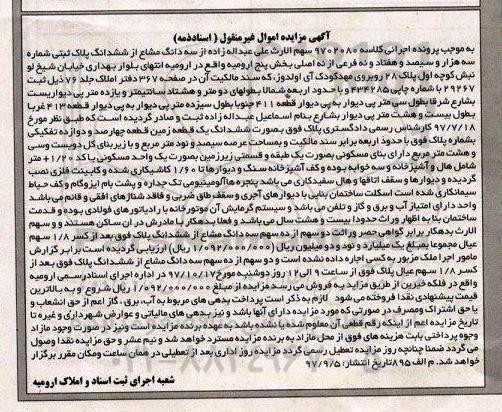 آگهی مزایده اموال غیرمنقول ( اسنادذمه)
به موجب پرونده اجرائی کلاسه ۹۷۰۲۰۸۰ سهم الارث علی عبداله زاده از سه دانگ مشاع از ششدانگ پلاک ثبتی شماره
سه هزار و سیصد و هفتاد و نه فرعی از نه اصلی بخش پنج ارومیه واقع در ارومیه انتهای بلوار بهداری خیابان شیخ لو
نبش کوچه اول پلاک ۲۸ روبروی مهدکودک آی اولدوز، که سند مالکیت آن در صفحه ۳۶۷ دفتر املاک جلد ۷۶ ذیل ثبت
۲۹۲۶۷ با شماره چاپی ۴۳۴۲۸۵ با حدود اربعه شمالا بطولهای دو متر و هشتاد سانتیمتر و یازده متر پی دیواریست
بشارع شرقا بطول سی متر پی دیوار به پی دیوار قطعه ۴۱۱ جنوبا بطول سیزده متر پی دیوار به پی دیوار قطعه ۴۱۳ غربا
بطول بیست و هشت متر پی دیوار بشارع بنام اسماعیل عبداله زاده ثبت و صادر گردیده است که طبق نظر مورخ
۹۷/۷/۱۸ کارشناس رسمی دادگستری پلاک فوق بصورت ششدانگ یک قطعه زمین قطعه چهارصد و دوازده تفکیکی
بشماره پلاک فوق با حدود اربعه برابر سند مالکیت و بمساحت عرصه سیصد و نود متر مربع و با زیربنای کل دویست وسی
و هشت متر مربع دارای بنای مسکونی بصورت یک طبقه و قسمتی زیرزمین بصورت یک واحد مسکونی با کد ۱/۲۰+ متر
شامل هال و آشپزخانه و سه خوابه بوده و کف آشپزخانه سنگ و دیوارها تا ۱/۶۰ کاشیکاری شده و کابینت فلزی نصب
گردیده و دیوارها و سقف اتاقها و هال سفیدکاری می باشد پنجره ها آلومینیومی تک جداره و پشت بام ایزوگام و کف حیاط
سیمانکاری شده است اسکلت ساختمان بنایی با دیوارهای آجری و سقف طاق ضربی و فاقد شناژهای افقی و قائم می باشد
واحد دارای امتیاز آب و برق و گاز و تلفن می باشد و سیستم گرمایش آن موتورخانه با رادیاتورهای فولادی بوده و قدمت
ساختمان بنا به اظهار وراث حدودا بیست و هشت سال می باشد و فعلا بدهکار با مادرش در آن ساکن هستند و و سهم
الارث بدهکار برابر گواهی حصر وراثت دو سهم از ده سهم سه دانگ مشاع از ششدانگ پلاک فوق بعد از کسر ۱/۸ سهم
عیال مجموعا بمبلغ یک میلیارد و نود و دو میلیون ریال (۱/۰۹۲/۰۰۰/۰۰۰ ریال) ارزیابی گردیده است و برابر گزارش
مامور اجرا ملک مزبور به کسی اجاره داده نشده است و دو سهم از ده سهم سه دانگ مشاع از ششدانگ پلاک فوق بعد از
کسر ۱/۸ سهم عیال پلاک فوق از ساعت ۹ الی ۱۲ روز دوشنبه مورخ ۹۷/۱۰/۱۷ در اداره اجرای اسنادرسمی ارومیه
واقع در فلکه خیرین از طریق مزایده به فروش می رسد مزایده از مبلغ ۱/۰۹۲/۰۰۰/۰۰۰ ریال شروع و به بالاترین
قیمت پیشنهادی نقدا فروخته می شود لازم به ذکر است پرداخت بدهی های مربوط به آب، برق، گاز اعم از حق انشعاب و
یا حق اشتراک ومصرف در صورتی که مورد مزایده دارای آنها باشد و نیز بدهی های مالیاتی و عوارض شهرداری و غیره تا
تاریخ مزایده اعم از اینکه رقم قطعی آن معلوم شده یا نشده باشد به عهده برنده مزایده است ونیز در صورت وجود مازاد
وجوه پرداختی بابت هزینه های فوق از محل مازاد به برنده مزایده مسترد خواهد شد و نیم عشر و حق مزایده نقدا وصول
می گردد ضمنا چنانچه روز مزایده تعطیل رسمی گردد مزایده روز اداری بعد از تعطیلی در همان ساعت ومکان مقرر برگزار
خواهد شد. م الف ۸۹۵ تاریخ انتشار: ۹۷/۹/۵
شعبه اجرای ثبت اسناد و املاک ارومیه